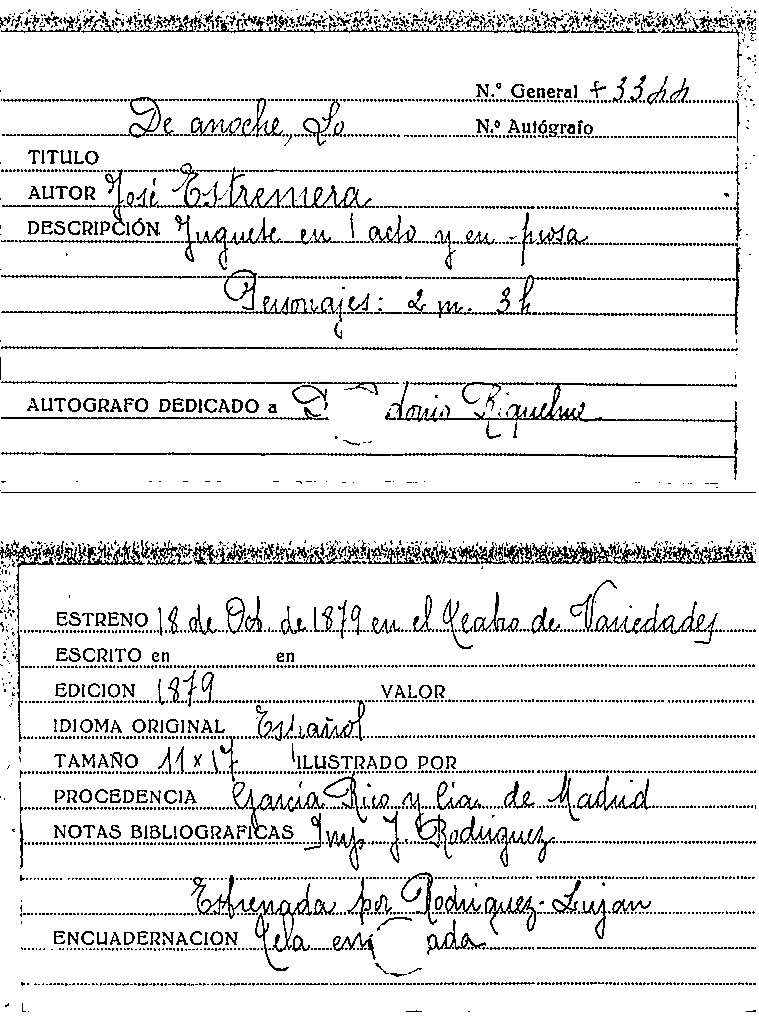 N.º General + 3344
De anoche, Lo
N.º Autógrafo
TITULO
AUTOR José Estremera
DESCRIPCIÓN Juguete en 1 acto y en prosa
Personajes: 2 m. 3 h
AUTOGRAFO DEDICADO a D. donis Riquelme
ESTRENO 18 de Oct. de 1879 en el Teatro de Variedades
ESCRITO en en
EDICION 1879 VALOR
IDIOMA ORIGINAL Español
TAMAÑO 11 x 17 ILUSTRADO POR
PROCEDENCIA García Rico y Cia. de Madrid
NOTAS BIBLIOGRAFICAS Imp. J. Rodriguez
Estrenada por Rodriguez - Lujan
ENCUADERNACION Tela